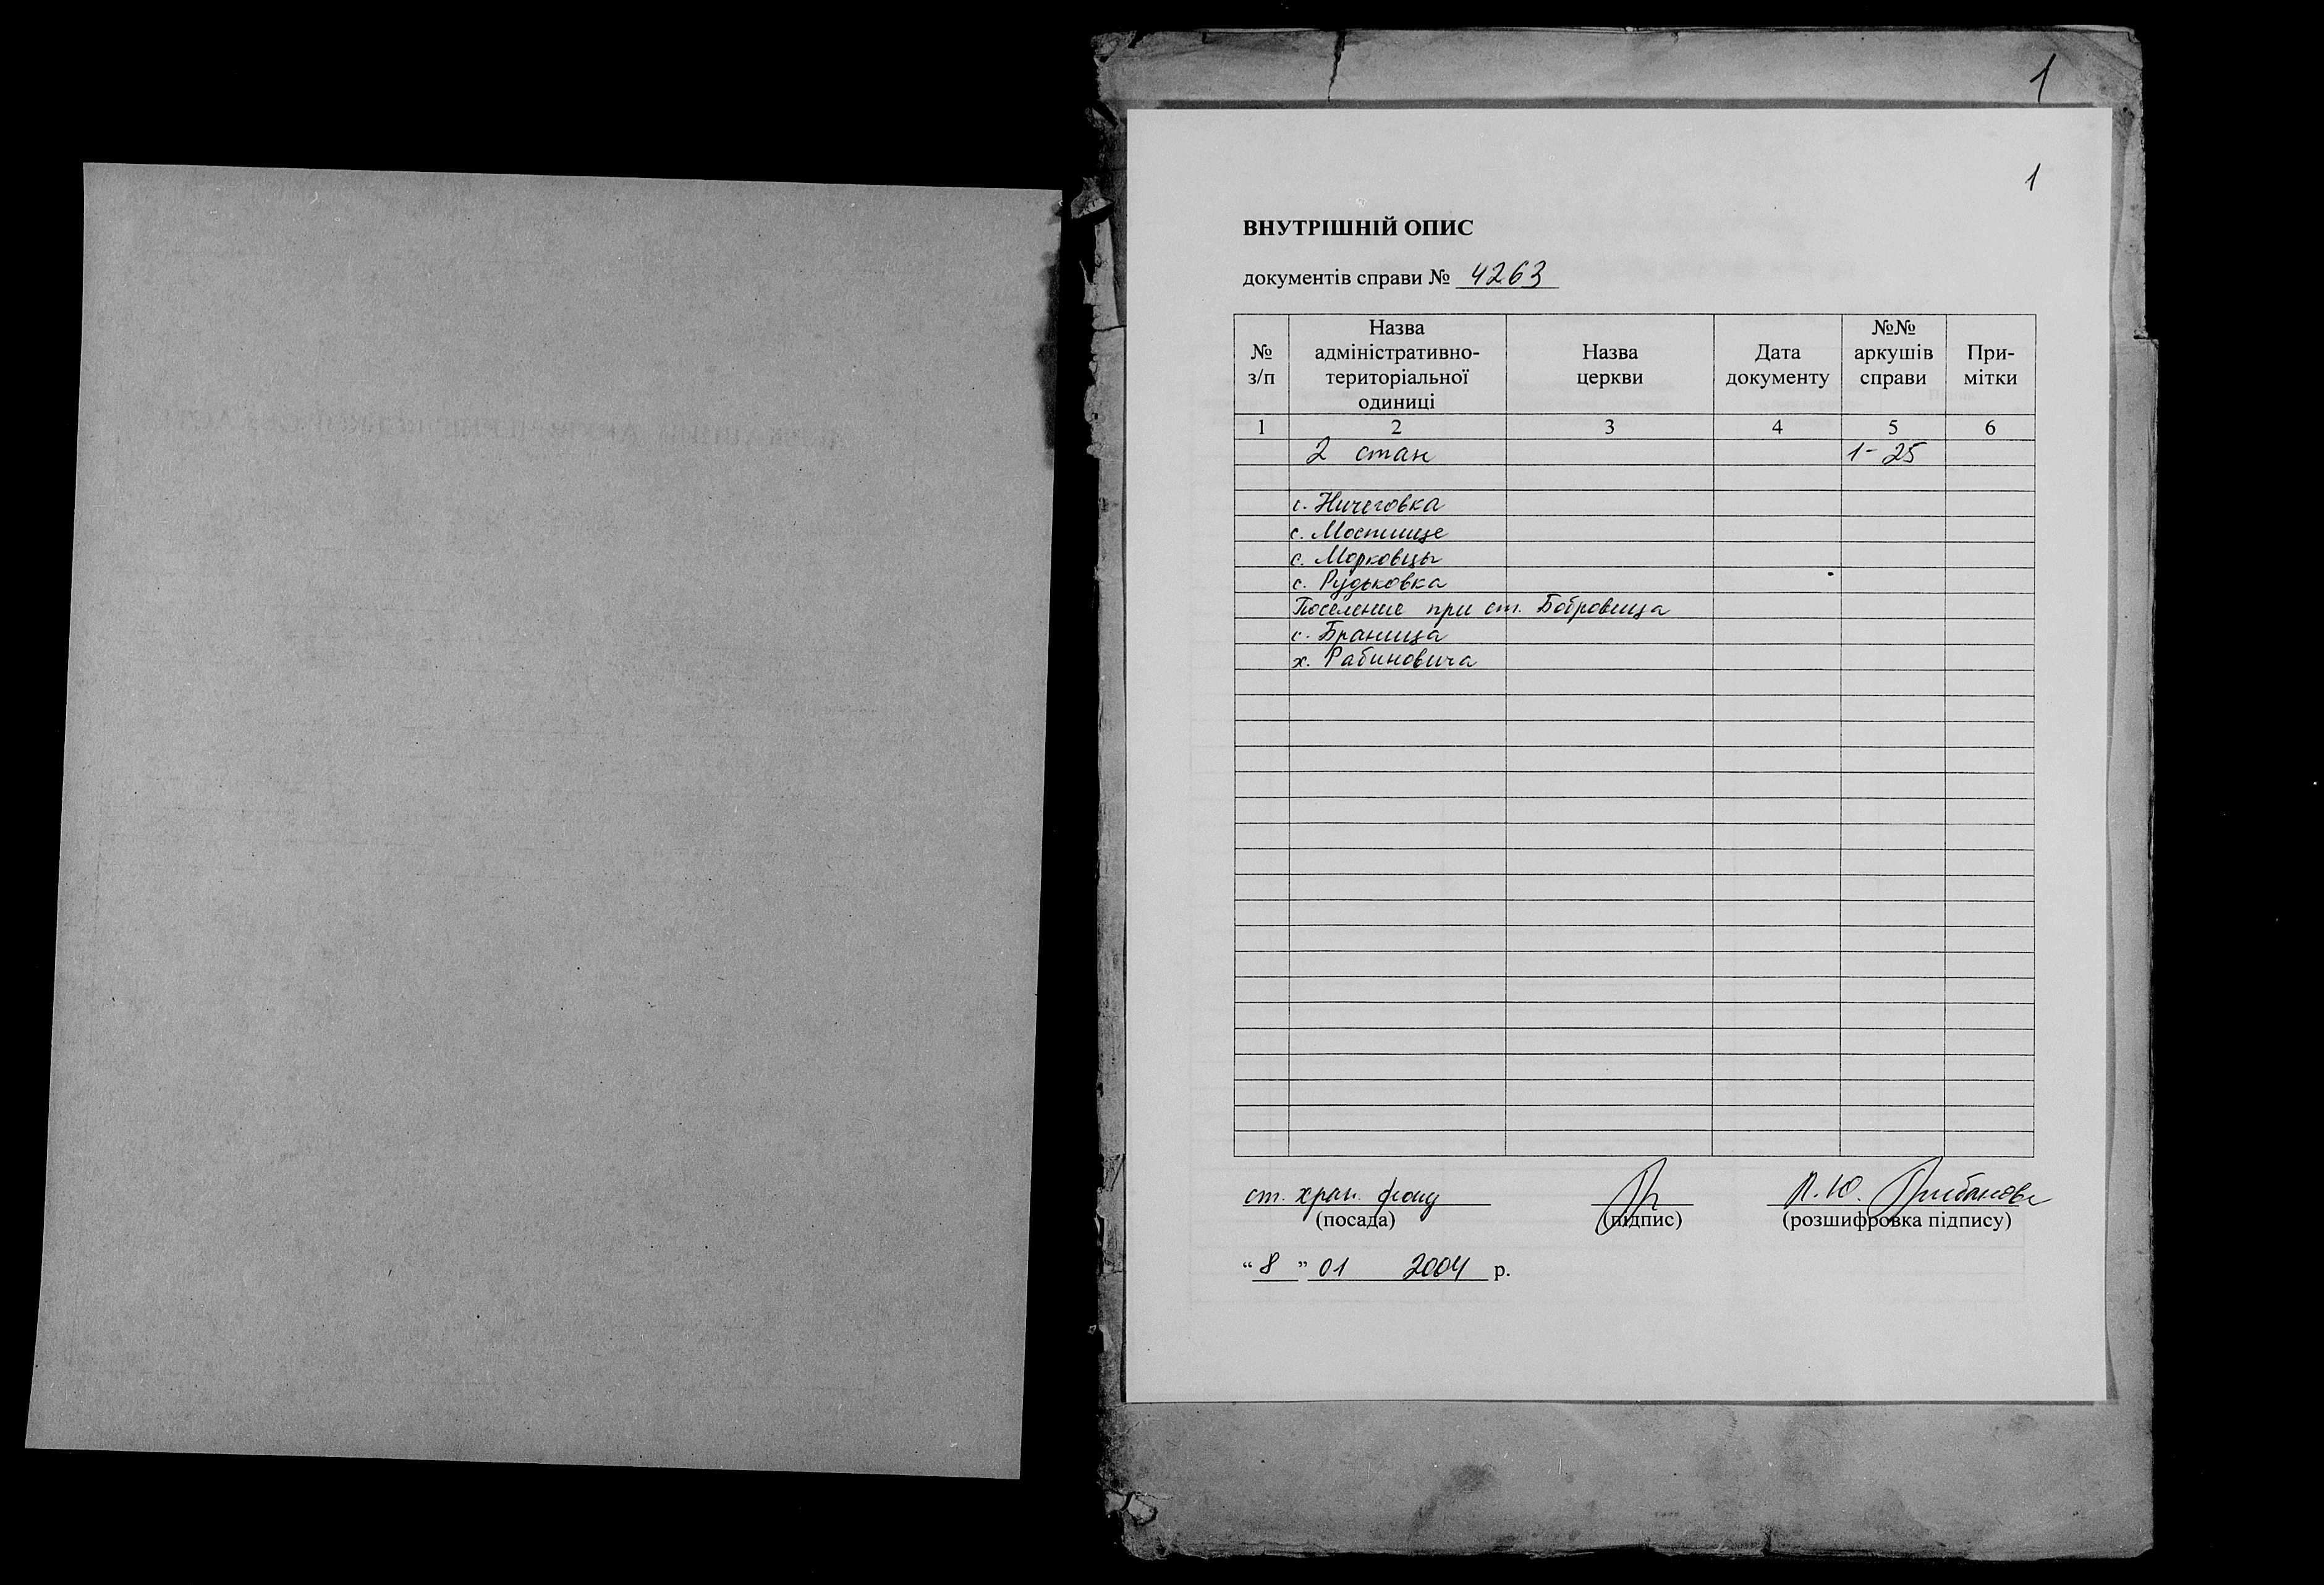 1
1
ВНУТРІШНІЙ ОПИС
документів справи № 4263
№ з/п
Назва адміністративно-територіальної одиниці
Назва церкви
Дата документу
№№ аркушів справи
При-мітки
1 2 3 4 5 6
2 стан 1-25
с. Ничеговка
с. Мостище
с. Марковцы
с. Рудьковка
Поселение при ст. Бобровица
с. Браница
х. Рабиновича
ст. хран. фонд
(посада) (підпис) (розшифровка підпису)
П. Ю.
“ 8 ” 01 2004 р.